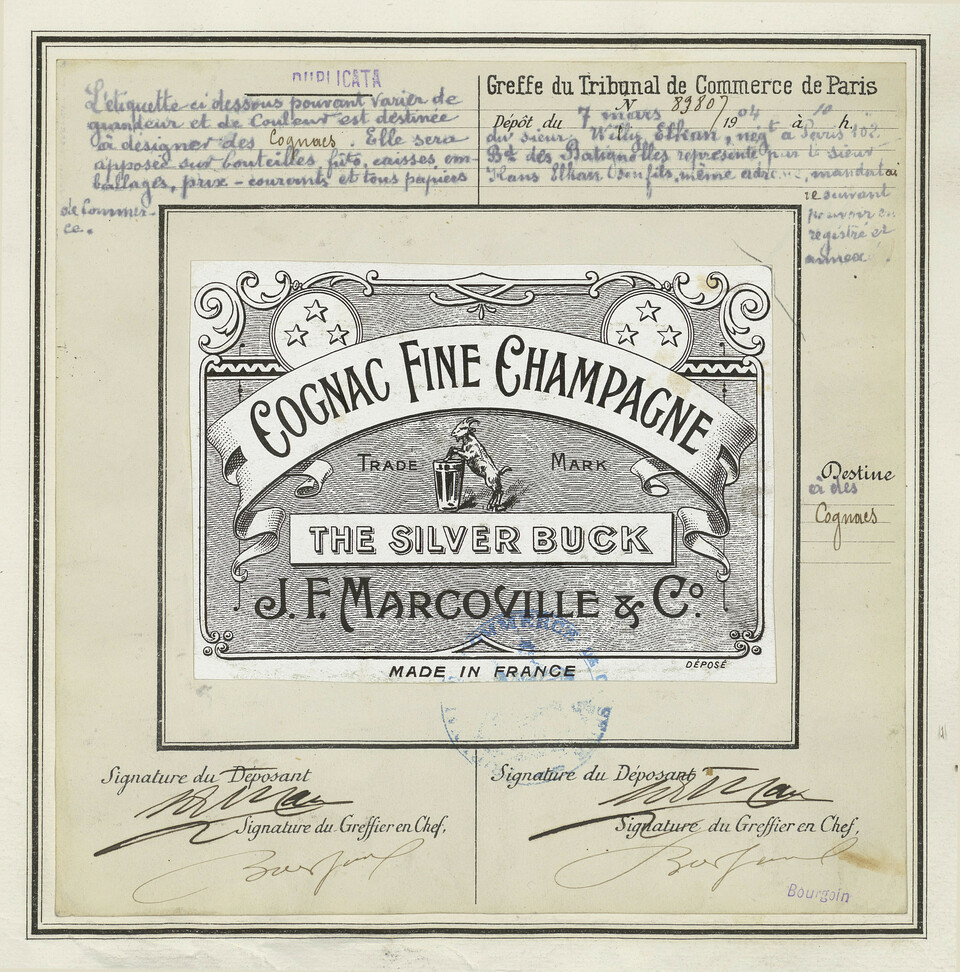 DUPLICATA
L'étiquette ci dessous pouvant varier de
grandeur et de couleur est destinée
à désigner des Cognacs. Elle sera
apposée sur bouteilles, fûts, caisses em-
ballages, prix-courants et tous papiers
de Commer-
ce.
Greffe du Tribunal de Commerce de Paris
N 89807
Dépôt du 7 mars 1904 à 10 h.
du sieur Willy Elkan, négt à Paris 102
Bd des Batignolles représenté par le sieur
Hans Elkan son fils, même adresse, mandatai
re suivant
pouvoir en
registré et
annexé.
COGNAC FINE CHAMPAGNE
TRADE MARK
THE SILVER BUCK
J. F. MARCOVILLE & Co.
MADE IN FRANCE
DÉPOSÉ
Destine
à des
Cognacs
Signature du Déposant
Signature du Greffier en Chef,
Signature du Déposant
Signature du Greffier en Chef,
Bourgoin